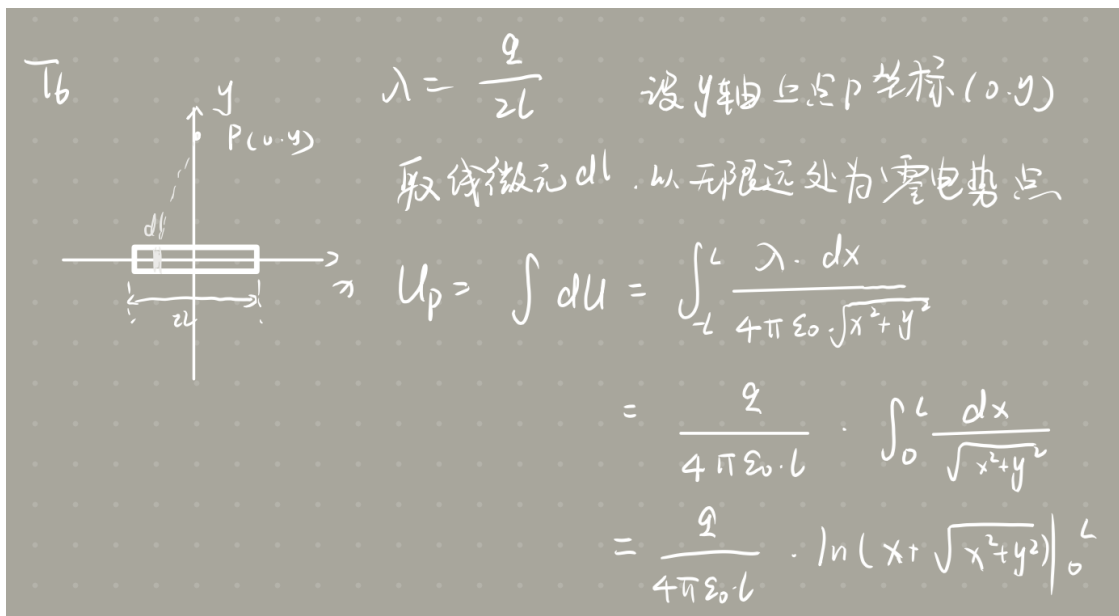 T6
y
P(0.y)
dl
x
2L
λ = q/2l 设y轴上点P坐标(0.y)
取线微元dl.以无限远处为零电势点
Up = ∫ dU = ∫_{-L}^{L} λ·dx / 4πε₀·√(x²+y²)
= q/(4πε₀·l) · ∫₀^L dx/√(x²+y²)
= q/(4πε₀·l) · ln(x+√(x²+y²))|₀^L